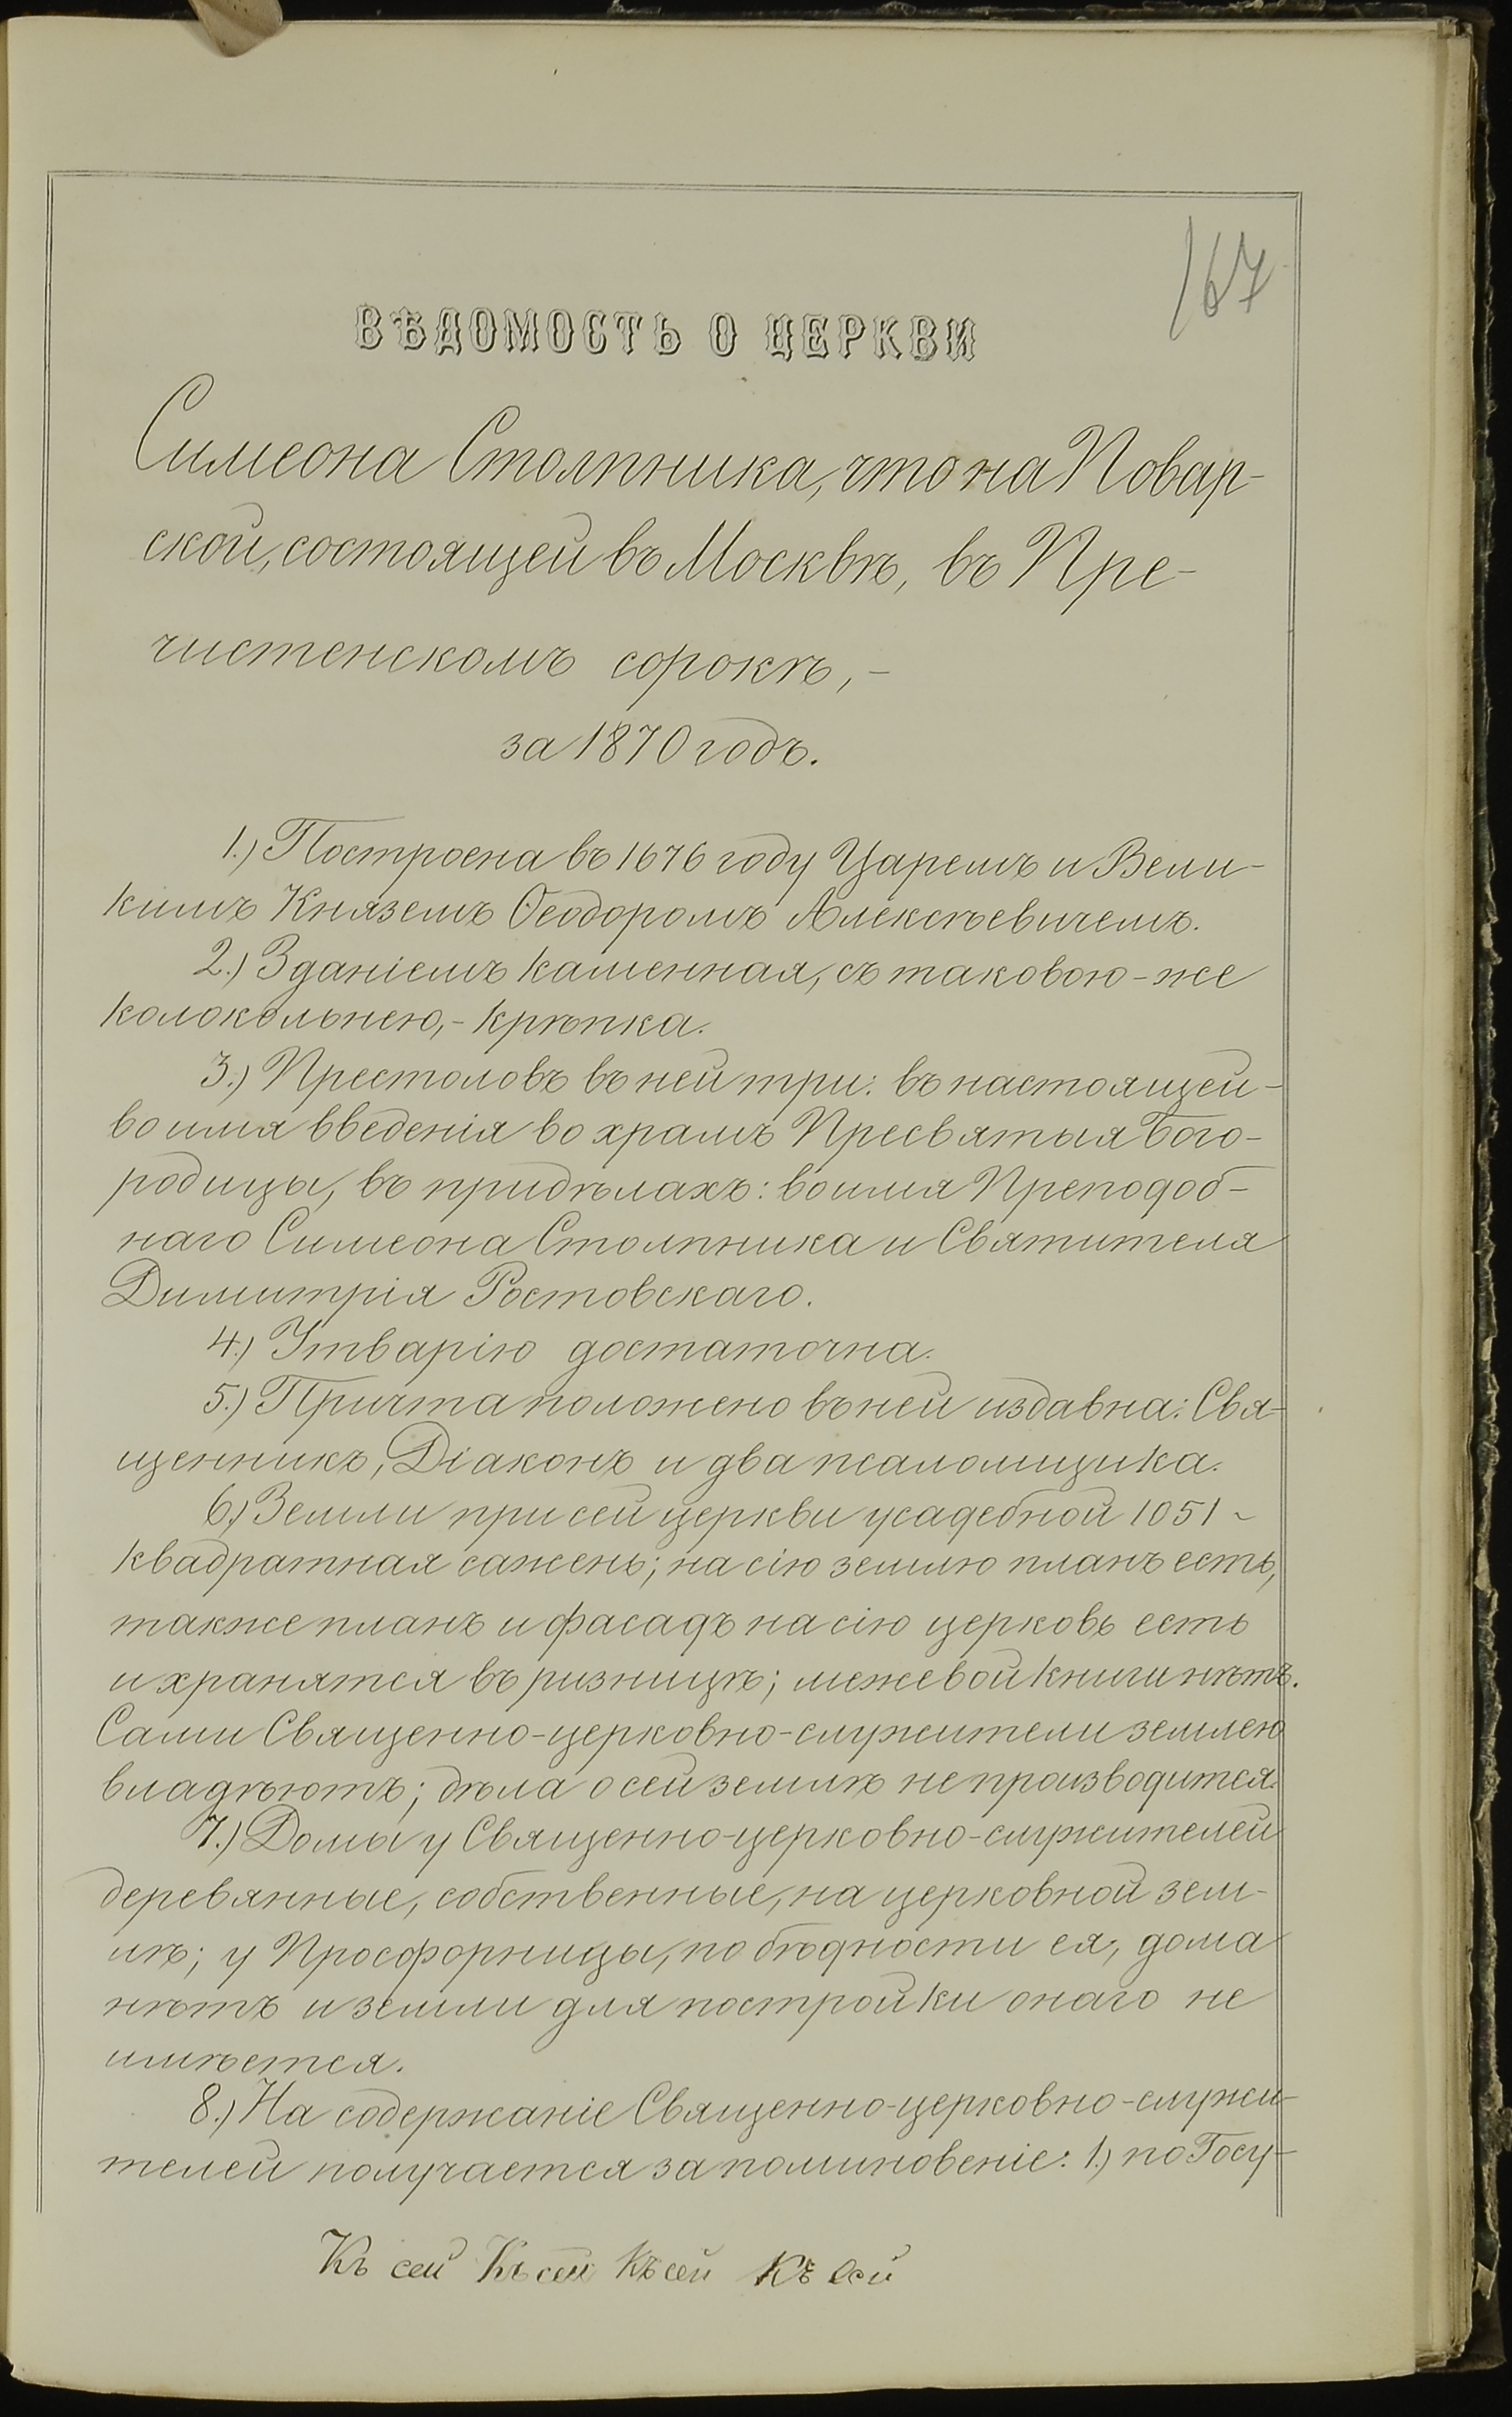 167
ВѢДОМОСТЬ О ЦЕРКВИ
Симеона Столпника, что на Повар-
ской, состоящей въ Москвѣ, въ Пре-
чистенскомъ сорокѣ,-
за 1870 годъ.
1.) Построена въ 1676 году Царемъ и Вели-
кимъ Княземъ Ѳеодоромъ Алексѣевичемъ.
2.) Зданіемъ каменная, съ таковою-же
колокольнею,- крѣпка.
3.) Престоловъ въ ней три: въ настоящей-
во имя введенія во храмъ Пресвятыя Бого-
родицы, въ придѣлахъ: во имя Преподоб-
наго Симеона Столпника и Святителя
Димитрія Ростовскаго.
4.) Утварію достаточна.
5.) Причта положено въ ней издавна: Свя-
щенникъ, Діаконъ и два псаломщика.
6.) Земли при сей церкви усадебной 1051 ~
квадратная сажень; на сію землю планъ есть,
также планъ и фасадъ на сію церковь есть
и хранятся въ ризницѣ; межевой книги нѣтъ.
Сами Священно-церковно-служители землею
владѣютъ; дѣла о сей землѣ не производится.
7.) Домы у Священно-церковно-служителей
деревянные, собственные, на церковной зем-
лѣ; у Просфорницы, по бѣдности ея, дома
нѣтъ и земли для постройки онаго не
имѣется.
8.) На содержаніе Священно-церковно-служи-
телей получается за поминовеніе: 1.) по Госу-
Къ сей Къ сей Къ сей Къ сей